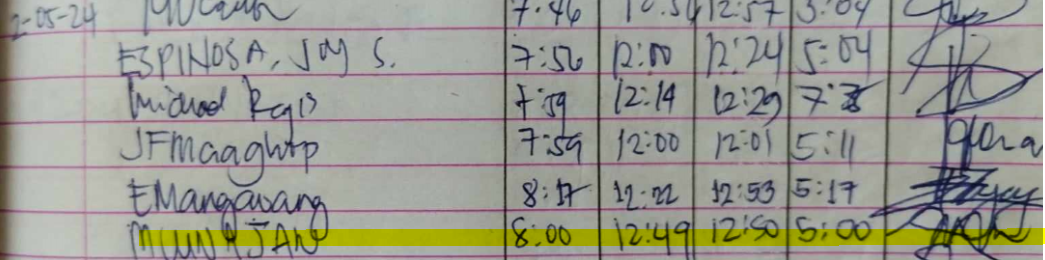 2-05-24 7:46 12:57 5:04
ESPINOSA, JOY S. 7:56 12:00 12:24 5:04
Michael Regis 7:59 12:14 12:29
JFMaaghop 7:59 12:00 12:01 5:11
EMangawang 8:17 12:22 12:53 5:17
8:00 12:49 12:50 5:00